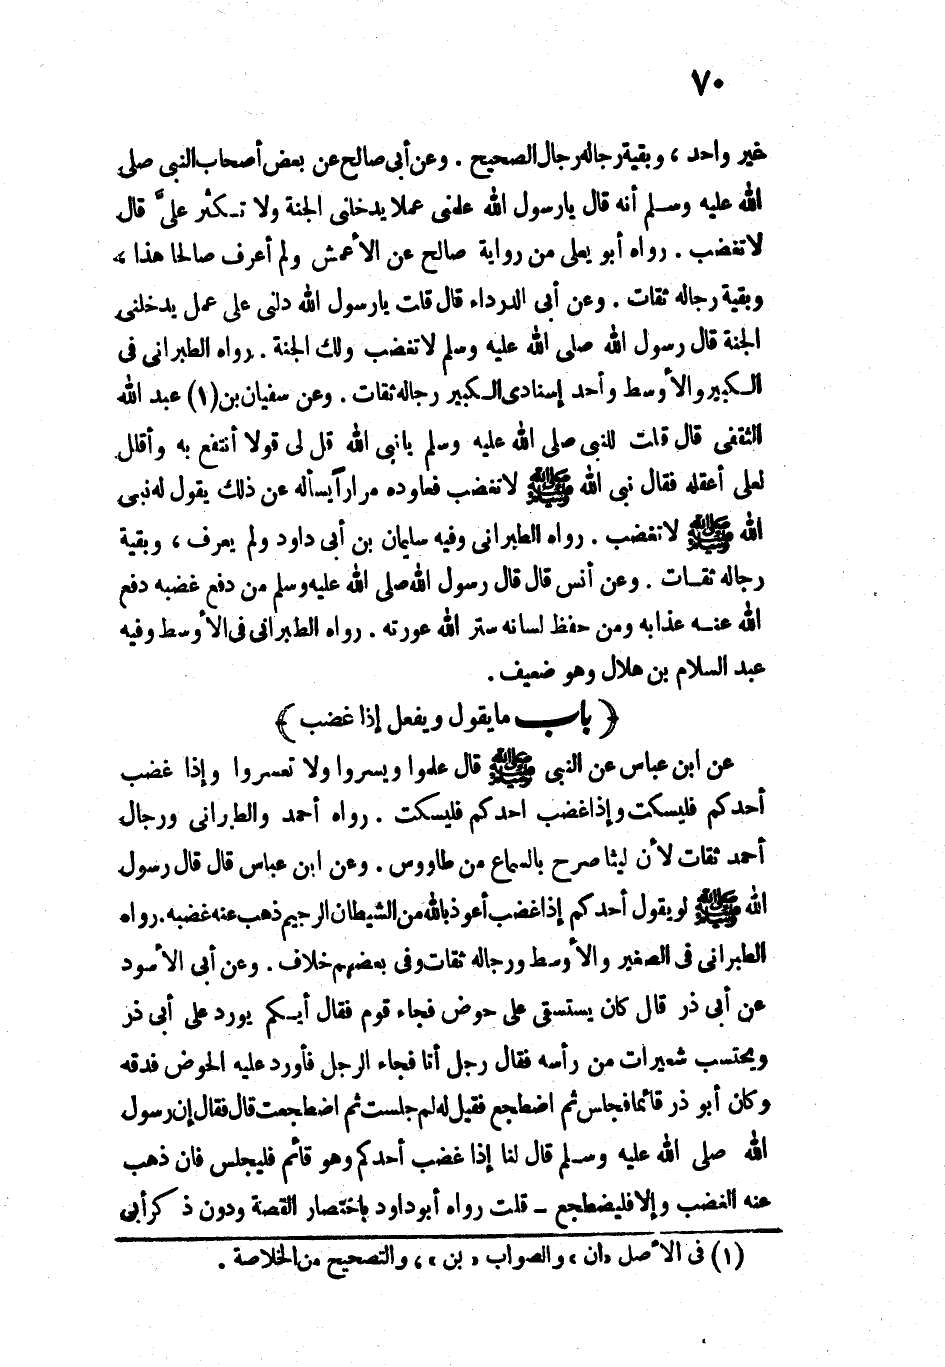 ٧٠
غير واحد ، وبقية رجاله رجال الصحيح . وعن أبى صالح عن بعض أصحاب النبى صلى
الله عليه وسلم أنه قال يارسول الله علمنى عملا يدخلنى الجنة ولا تكثر علىَّ قال
لا تغضب . رواه أبو يعلى من رواية صالح عن الأعمش ولم أعرف صالحا هذا ،
وبقية رجاله ثقات . وعن أبى الدرداء قال قلت يارسول الله دلنى على عمل يدخلنى
الجنة قال رسول الله صلى الله عليه وسلم لا تغضب ولك الجنة . رواه الطبرانى فى
الكبير والأوسط وأحد إسنادى الكبير رجاله ثقات . وعن سفيان بن (١) عبد الله
الثقفى قال قلت للنبى صلى الله عليه وسلم يانبى الله قل لى قولا أنتفع به وأقلل
لعلى أعقله فقال نبى الله ﷺ لا تغضب فعاوده مراراً يسأله عن ذلك يقول له نبى
الله ﷺ لا تغضب . رواه الطبرانى وفيه سليمان بن أبى داود ولم يعرف ، وبقية
رجاله ثقات . وعن أنس قال قال رسول الله صلى الله عليه وسلم من دفع غضبه دفع
الله عنه عذابه ومن حفظ لسانه ستر الله عورته . رواه الطبرانى فى الأوسط وفيه
عبد السلام بن هلال وهو ضعيف .
﴿ باب ما يقول ويفعل إذا غضب ﴾
عن ابن عباس عن النبى ﷺ قال علموا ويسروا ولا تعسروا وإذا غضب
أحدكم فليسكت وإذا غضب احدكم فليسكت . رواه أحمد والطبرانى ورجال
أحمد ثقات لأن ليثا صرح بالسماع من طاووس . وعن ابن عباس قال قال رسول
الله ﷺ لو يقول أحدكم إذا غضب أعوذ بالله من الشيطان الرجيم ذهب عنه غضبه . رواه
الطبرانى فى الصغير والأوسط ورجاله ثقات وفى بعضهم خلاف . وعن أبى الأسود
عن أبى ذر قال كان يستسقى على حوض فجاء قوم فقال أيكم يورد على أبى ذر
ويحتسب شعيرات من رأسه فقال رجل أنا فجاء الرجل فأورد عليه الحوض فدقه
وكان أبو ذر قائما فجلس ثم اضطجع فقيل له لم جلست ثم اضطجعت قال فقال إن رسول
الله صلى الله عليه وسلم قال لنا إذا غضب أحدكم وهو قائم فليجلس فان ذهب
عنه الغضب وإلا فليضطجع ــ قلت رواه أبو داود باختصار القصة ودون ذكر أبى
(١) فى الأصل « ان » والصواب « بن » ، والتصحيح من الخلاصة .